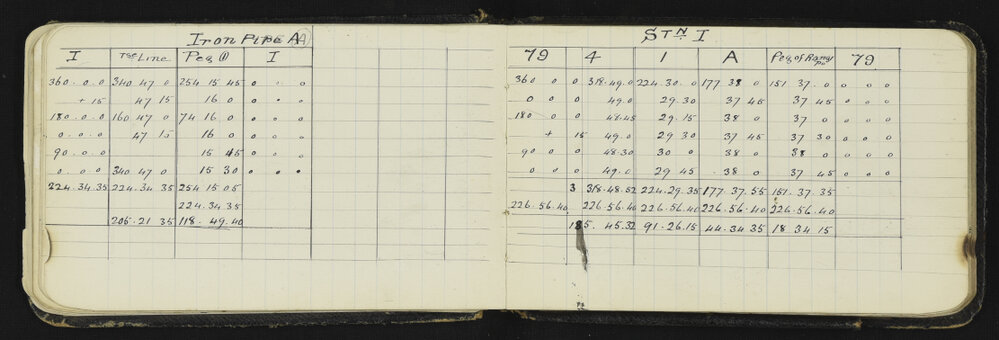 Iron Pipe A
I Tse Line Peg ① I
360 . 0 . 0 340 47 0 254 15 45 0 0 0
+ 15 47 15 16 0 0 0 0
180 . 0 . 0 160 47 0 74 16 0 0 0 0
0 . 0 . 0 47 15 16 0 0 0 0
90 . 0 . 0 15 45 0 0 0
0 . 0 . 0 340 47 0 15 30 0 0 0
224.34.35 224.34.35 254 15 05
224.34.35
205.21 35 118.49.40
STN I
79 4 1 A Peg of Range 79
360 0 0 318.49.0 224.30.0 177 38 0 151 37.0 0 0 0
0 0 0 49.0 29.30 37 45 37 45 0 0 0
180 0 0 48.45 29.15 38 0 37 0 0 0 0
+ 15 49.0 29 30 37 45 37 30 0 0 0
90 0 0 48.30 30 0 38 0 38 0 0 0 0
0 0 0 49.0 29 45 38 0 37 45 0 0 0
3 318.48.52 224.29.35 177.37.55 151.37.35
226.56.40 226.56.40 226.56.40 226.56.40 226.56.40
185.45.32 91.26.15 44.34.35 18 34.15